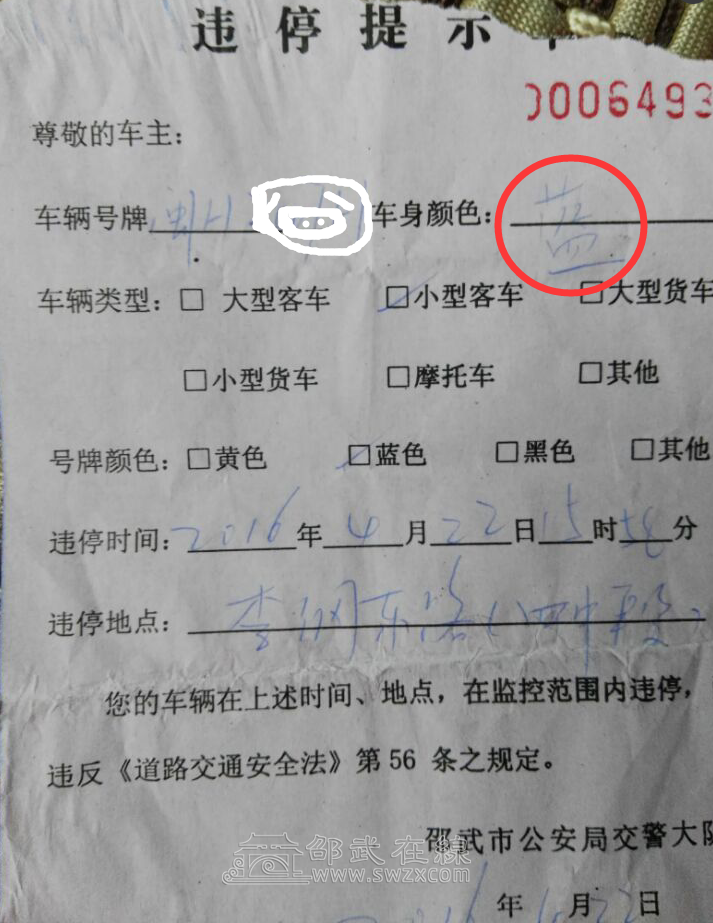 违停提示单
00006493
尊敬的车主:
车辆号牌 闽H 车身颜色: 蓝
车辆类型: □ 大型客车 ☑小型客车 □大型货车
□小型货车 □摩托车 □其他
号牌颜色: □黄色 ☑蓝色 □黑色 □其他
违停时间: 2016年4月22日15时58分
违停地点: 李纲东路(四中段)
您的车辆在上述时间、地点，在监控范围内违停，
违反《道路交通安全法》第56 条之规定。
邵武市公安局交警大队
邵武在線
www.swzx.com
2016年4月22日